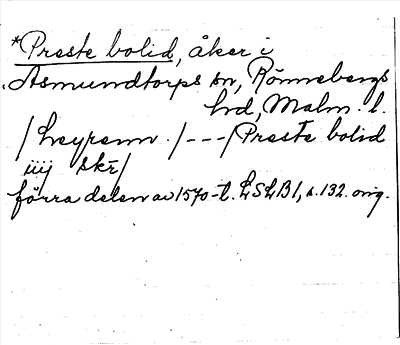 *Preste bolid, åker i
Asmundtorps sn, Rönnebergs
hd, Malm. l.
/Leyrenn./---/Preste bolid
iiij skr̄/
förra delen av 1570-t. LSLB1, s. 132. orig.